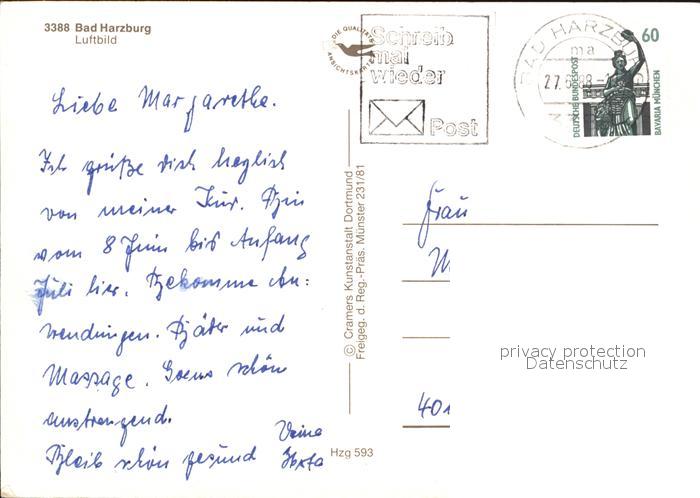 3388 Bad Harzburg
Luftbild
DIE QUALITÄTS
ANSICHTSKARTE
Schreib
mal
wieder
Post
BAD HARZBURG
ma
27.6.88
60
DEUTSCHE BUNDESPOST
BAVARIA MÜNCHEN
Liebe Margarethe.
Ich grüße dich herzlich
von meiner Kur. Bin
vom 8 Juni bis Anfang
Juli hier. Bekomme An:
wendungen. Bäder und
Massage. Ganz schön
anstrengend.
Bleib schön gesund
Deine
Herta
© Cramers Kunstanstalt Dortmund
Freigeg. d. Reg.-Präs. Münster 231/81
Hzg 593
Frau
M
40
privacy protection
Datenschutz